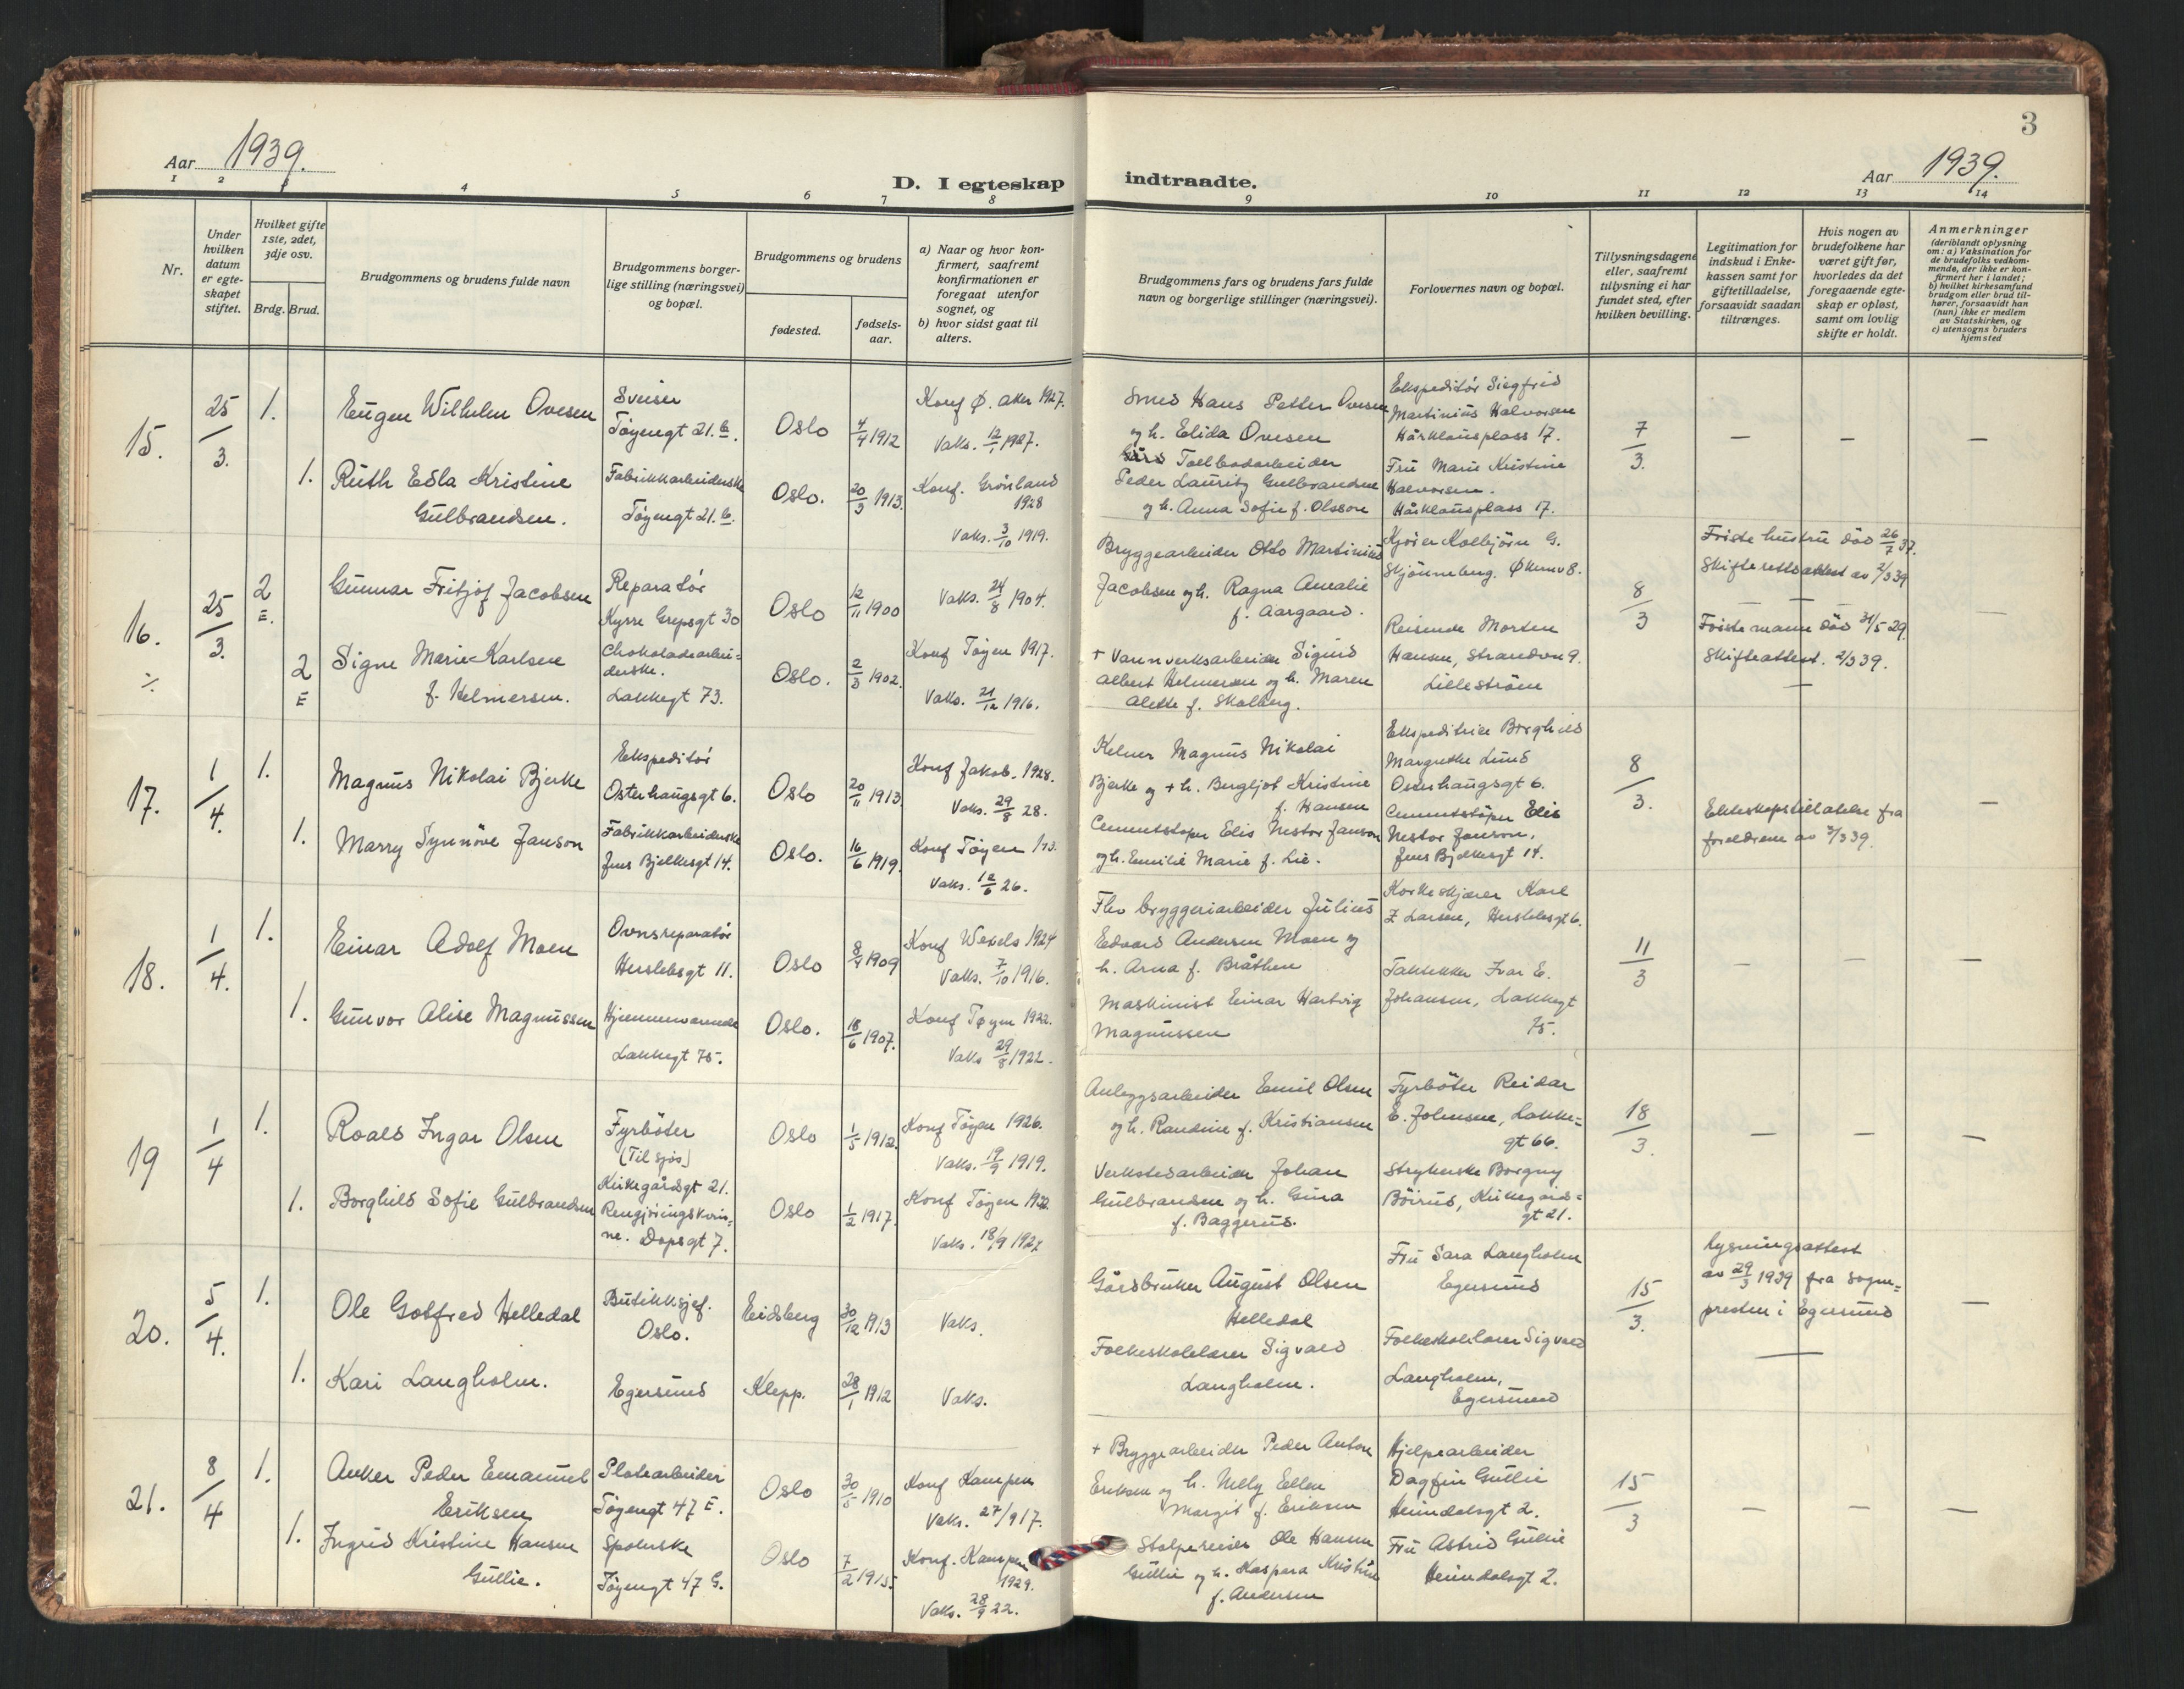 3
Aar 1939.
Aar 1939.
D. I egteskap indtraadte.
1 2 3 4 5 6 7 8 9 10 11 12 13 14
Nr.
Under hvilken datum er egteskapet stiftet.
Hvilket gifte 1ste, 2det, 3dje osv.
Brdg. Brud.
Brudgommens og brudens fulde navn
Brudgommens borgerlige stilling (næringsvei) og bopæl.
Brudgommens og brudens
fødested.
fødselsaar.
a) Naar og hvor konfirmert, saafremt konfirmationen er foregaat utenfor sognet, og
b) hvor sidst gaat til alters.
Brudgommens fars og brudens fars fulde navn og borgerlige stillinger (næringsvei).
Forlovernes navn og bopæl.
Tillysningsdagene eller, saafremt tillysning ei har fundet sted, efter hvilken bevilling.
Legitimation for indskud i Enkekassen samt for giftetilladelse, forsaavidt saadan tiltrænges.
Hvis nogen av brudefolkene har været gift før, hvorledes da det foregaaende egteskap er opløst, samt om lovlig skifte er holdt.
Anmerkninger
(deriblandt oplysning om: a) Vaksination for de brudefolks vedkommende, der ikke er konfirmert her i landet; b) hvilket kirkesamfund brudgom eller brud tilhører, forsaavidt han (hun) ikke er medlem av Statskirken, og c) utensogns bruders hjemsted
15.
25/3.
1.
Eugen Wilhelm Ovesen
Sveiser
Tøyengt 21.b.
Oslo
4/4 1912
Konf Ø. Aker 1927.
Vaks. 12/1 1927.
1.
Ruth Edla Kristine
Gulbrandsen.
Fabrikkarbeiderske
Tøyengt 21.b.
Oslo.
20/3 1913.
Konf. Grønland
1928
Vaks. 3/10 1919.
Smed Hans Petter Ovesen
og h. Elida Ovesen
Tollbodarbeider
Peder Lauritz Gulbrandsen
og h. Anna Sofie f. Olsson
Ekspeditør Siegfried
Martinius Halvorsen
Hårklausplass 17.
Fru Marie Kristine
Halvorsen.
Hårklausplass 17.
7/3.
— — —
16.
25/3.
2
E.
Gunnar Fritjof Jacobsen
Reparatør
Kyrre Grepsgt 30
Oslo
12/11 1900
Vaks. 24/8 1904.
2
E
Signe Marie Karlsen
f. Helmersen.
Chokoladearbeiderske.
Lakkegt 73.
Oslo.
2/3 1902.
Konf Tøyen 1917.
Vaks. 21/12 1916.
Bryggearbeider Otto Martinius
Jacobsen og h. Ragna Amalie
f. Aargaard.
+ Vannverksarbeider Sigurd
Albert Helmersen og h. Maren
Alette f. Skolberg.
Kjører Kolbjørn G.
Skjønneberg. Økernv 8.
Reisende Morten
Hansen, Strandvn 9.
Lillestrøm
8/3
Første hustru død 26/7 37.
Skifterettsattest av 2/3 39
Første mann død 31/5 29.
Skifteattest. 2/3 39.
17.
1/4.
1.
Magnus Nikolai Bjerke
Ekspeditør
Osterhausgsgt 6.
Oslo
20/11 1913
Konf Jakob. 1928.
Vaks. 29/8 28.
1.
Marry Synnøve Janson
Fabrikkarbeiderske
Jens Bjelkesgt 14.
Oslo.
16/6 1919.
Konf Tøyen
Vaks. 12/6 26.
Kelner Magnus Nikolai
Bjerke og + h. Bergljot Kristine
f. Hansen
Cementstøper Elis Nestor Janson
og h. Emilie Marie f. Lie.
Ekspeditrice Borghild
Margrethe Lund
Osterhausgsgt 6.
Cementstøper Elis
Nestor Janson,
Jens Bjelkesgt 14.
8/3.
Ekteskapstillatelse fra
foreldrene av 3/3 39.
—
18.
1/4.
1.
Einar Adolf Moen
Ovnsreparatør
Herslebsgt 11.
Oslo
8/4 1909
Konf Wexels 1924
Vaks. 7/10 1916.
1.
Gunvor Alise Magnussen
Hjemmeværende
Lakkegt 75.
Oslo.
18/6 1907.
Konf Tøyen 1922.
Vaks 29/8 1922.
Fhv bryggeriarbeider Julius
Edvard Andersen Moen og
h. Arna f. Bråthen
Maskinist Einar Hartvig
Magnussen
Korkeskjærer Karl
Z Larsen, Herslebsgt 6.
Taktekker Ivar E.
Johansen, Lakkegt
75.
11/3
— — —
19
1/4
1.
Roald Ingar Olsen
Fyrbøter
(Til sjøs)
Kirkegårdsgt 21.
Oslo
1/5 1912.
Konf Tøyen 1926.
Vaks. 19/9 1919.
1.
Borghild Sofie Gulbrandsen
Rengjøringskvinne. Dopsgt 7.
Oslo
1/2 1917.
Konf Tøyen
Vaks. 18/9
Anleggsarbeider Emil Olsen
og h. Randine f. Kristiansen
Verkstedarbeider Johan
Gulbrandsen og h. Gina
f. Baggerus.
Fyrbøter Reidar
E. Johnsen, Lakkegt 66.
Strykerske Borgny
Bøirud, Kirkegårdsgt 21.
18/3.
— — —
20.
5/4.
1.
Ole Gotfred Helledal
Butikksjef.
Oslo.
Eidsberg
30/12 1913
Vaks.
1.
Kari Langholm.
Egersund
Klepp.
28/1 1912
Vaks.
Gårdbruker August Olsen
Helledal
Folkeskolelærer Sigvald
Langholm.
Fru Sara Langholm
Egersund
Folkeskolelærer Sigvald
Langholm,
Egersund
15/3.
Lysningsattest
av 29/3 1939 fra sogne=
presten i Egersund
—
21.
8/4
1.
Anker Peder Emanuel
Eriksen
Platearbeider
Tøyengt 47 E.
Oslo
30/5 1910
Konf Kampen
Vaks. 27/9 17.
1.
Ingrid Kristine Hansen
Gullie.
Spolerske
Tøyengt 47 G.
Oslo
7/2 1915.
Konf. Kampen
1929.
Vaks. 28/9 22.
+ Bryggearbeider Peder Anton
Eriksen og h. Nelly Ellen
Margit f. Eriksen
Stolpereiser Ole Hansen
Gullie og h. Kaspara Kristine
f. Andersen
Hjelpearbeider
Dagfin Gullie
Heimdalsgt 2.
Fru Astrid Gullie
Heimdalsgt 2.
15/3
— — —